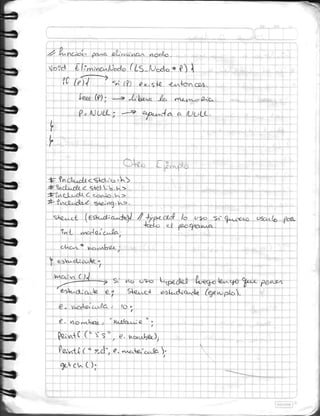 // Funcion para eliminar nodo
void EliminarNodo (LS_Nodo * P) {
if (P) { si (P) existe entonces
free (P); → libera la memoria
P = NULL; → apunta a NULL
}
}
Otro Ejemplo
# include <stdio.h>
# include < stdlib.h>
# include < conio.h>
# include < string.h>
struct (estudiante) { // typedef lo uso si quiero usarlo para
todo el programa
int matricula;
char * nombre;
} estudiante;
main () { si no uso typedef luego tengo que poner
estudiante e; struct estudiante (ejemplo)
e. matricula = 10;
e. nombre = "Melanie";
printf ("%s", e. nombre);
printf ("%d", e. matricula);
getch ();